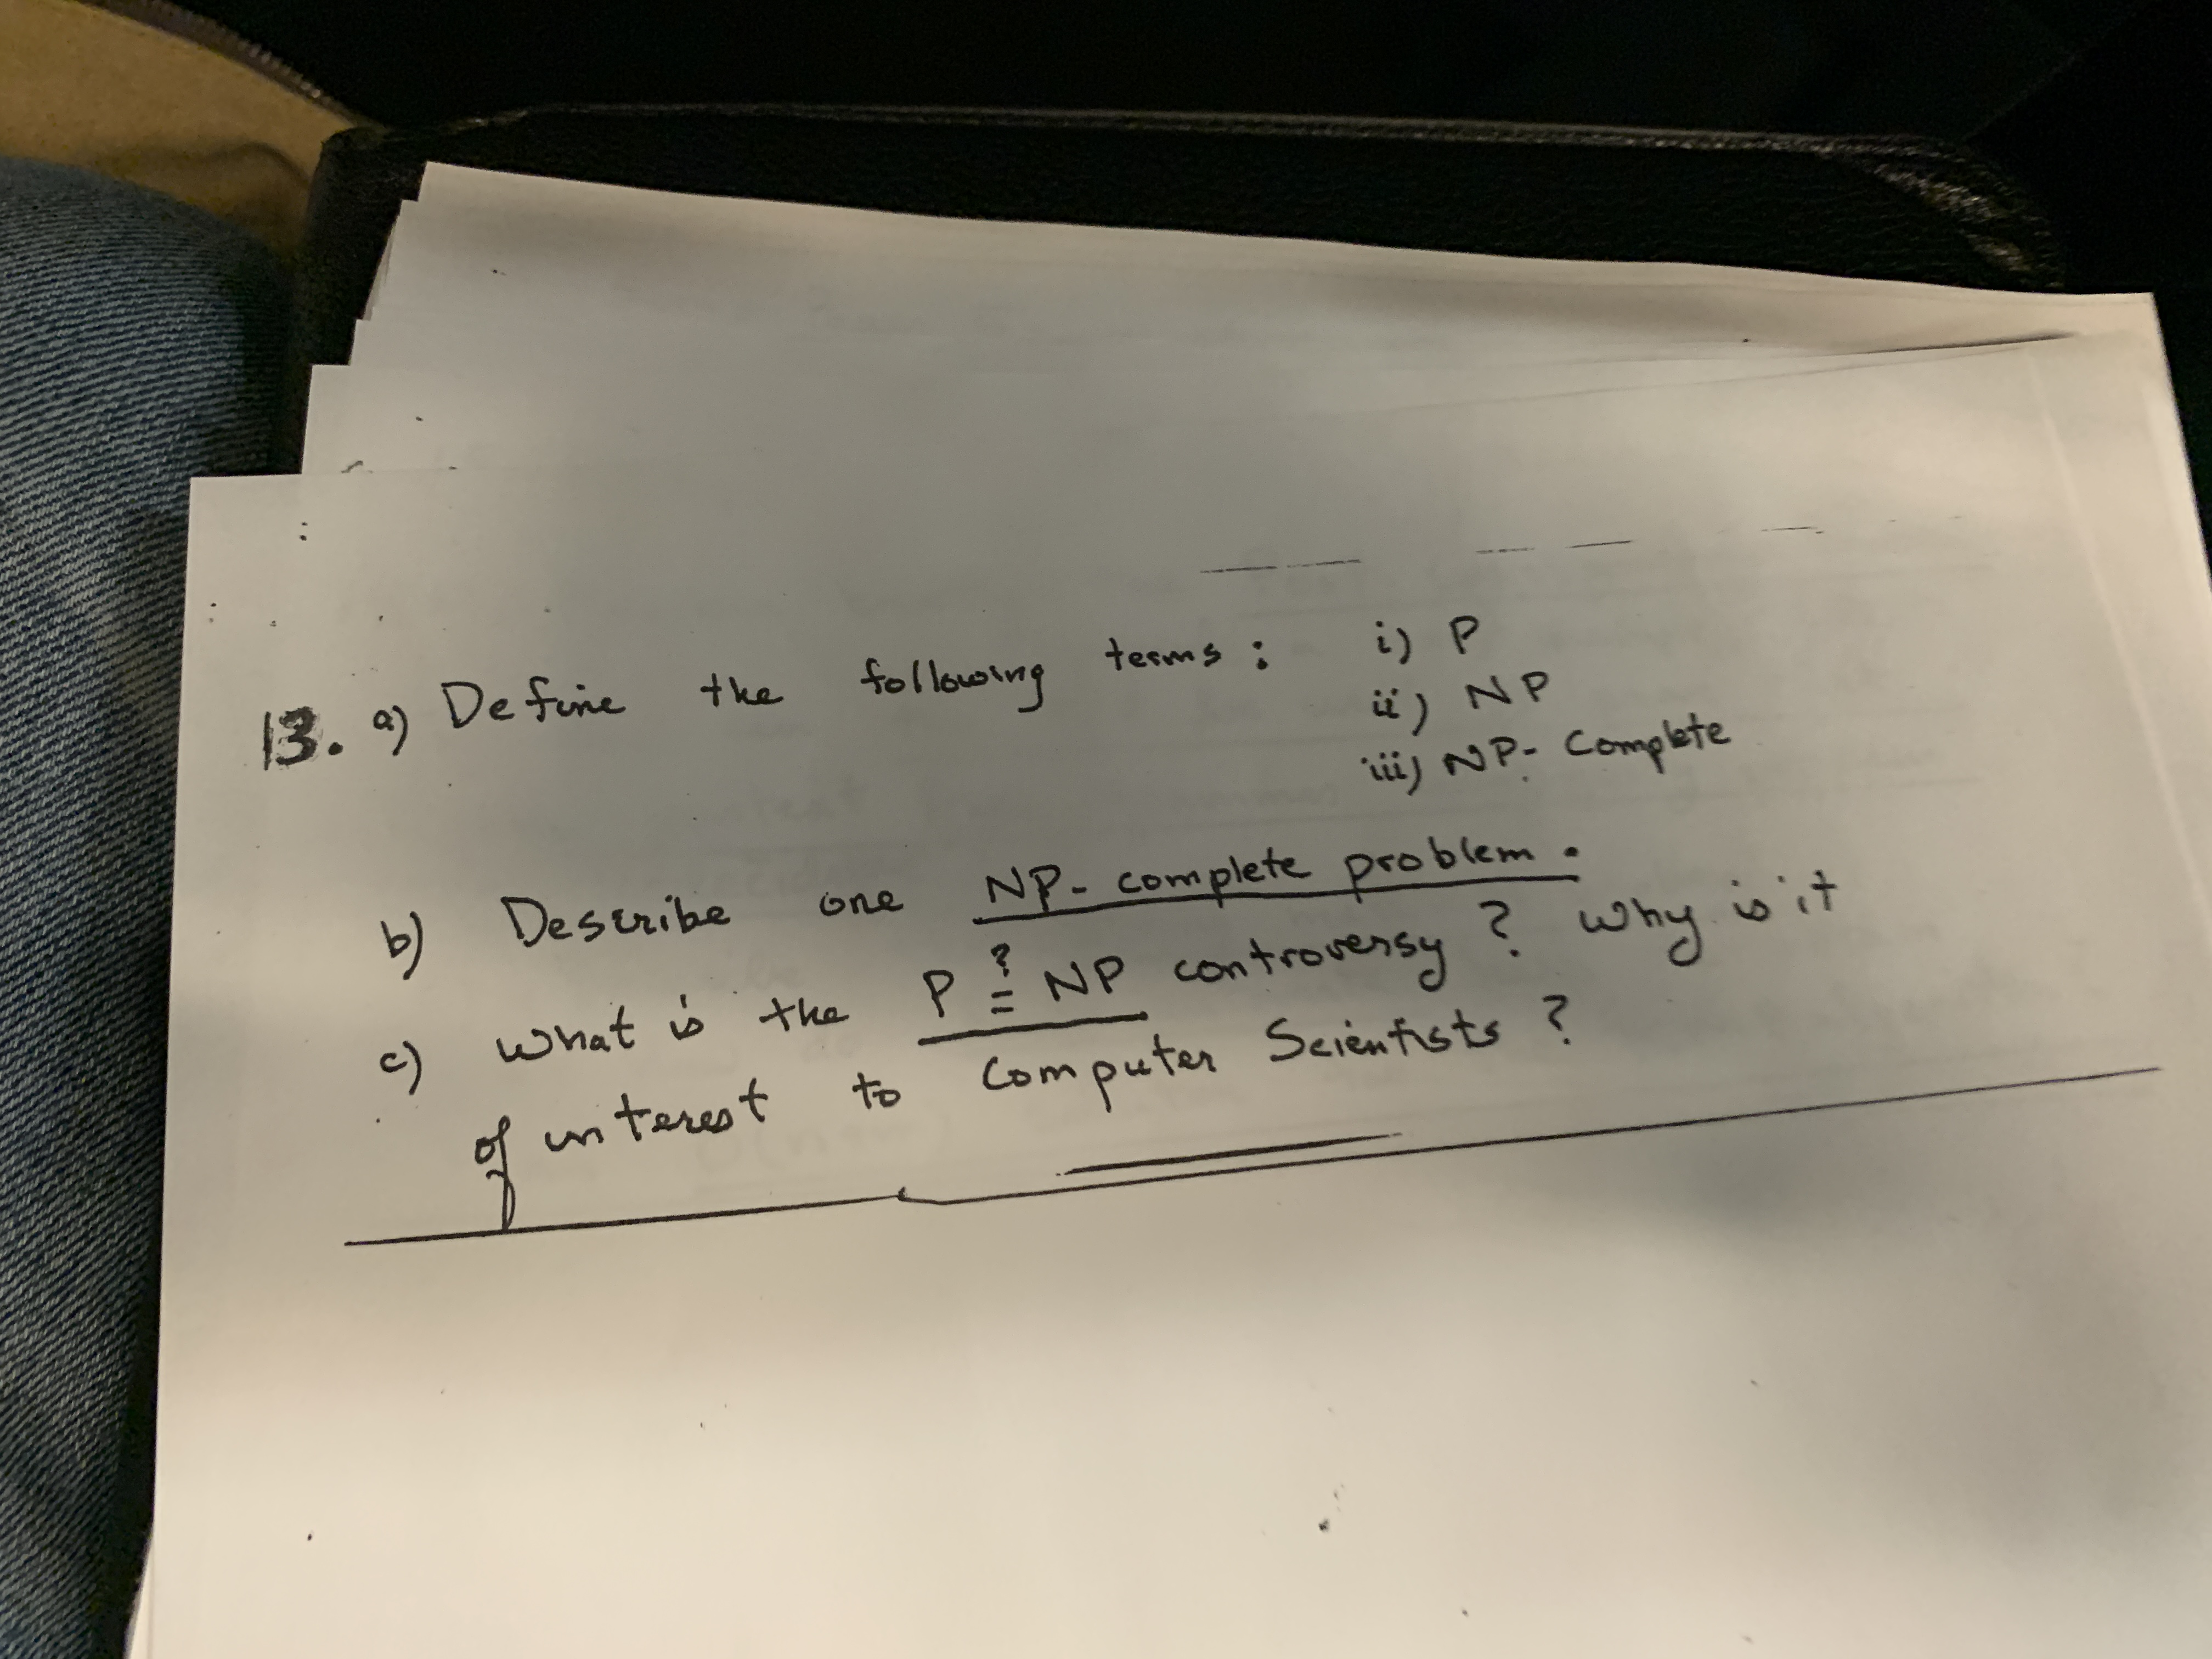 13. a) Define the following terms : i) P
ii) NP
iii) NP-Complete
b) Describe one NP-complete problem.
c) What is the P ?= NP controversy ? Why is it
of interest to Computer Scientists ?